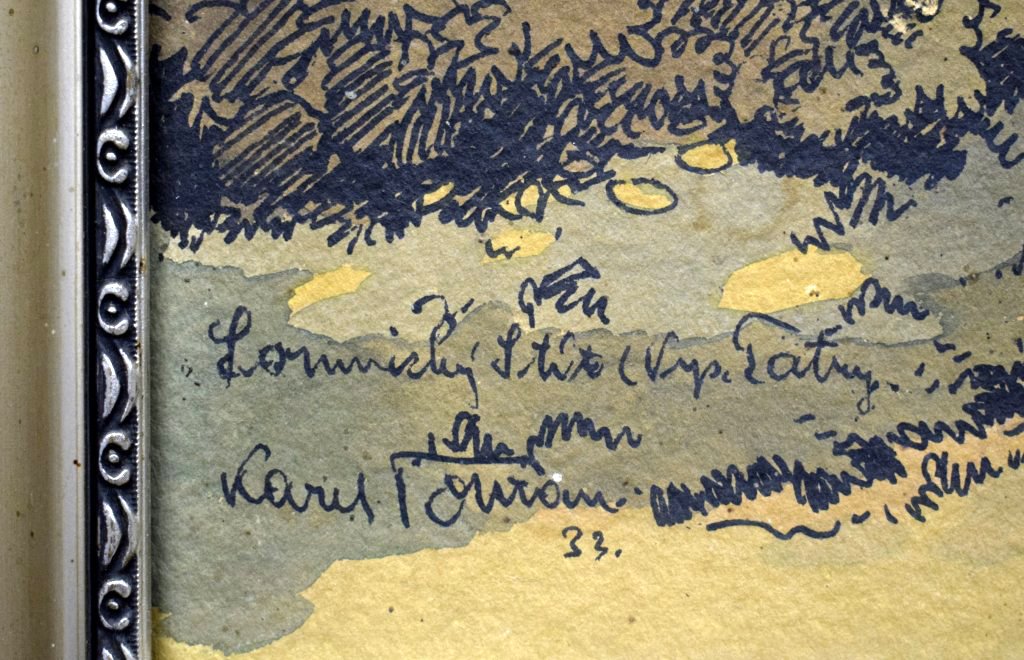 Lomnický Štít (Vys. Tatry.
Karel Toman.
33.